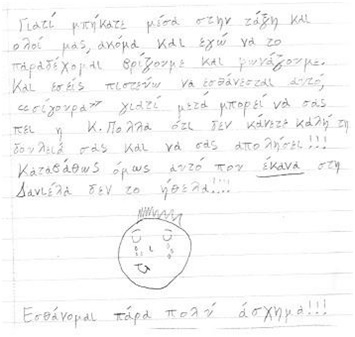 Γιατί μπήκατε μέσα στην τάξη και
ολοί μας, ακόμα και εγώ να το
παραδέχομαι βρίζουμε και φωνάζουμε.
Και εσείς πιστεύω να εσθάνεσται αυτό,
«σίγουρα» γιατί μετά μπορεί να σας
πει η Κ. Πολλα ότι δεν κάνετε καλή τη
δουλειά σας και να σας απολήσει!!!
Καταβάθως όμως αυτό που έκανα στη
Δανιέλα δεν το ήθελα!!!!
Εσθάνομαι πάρα πολύ άσχημα!!!